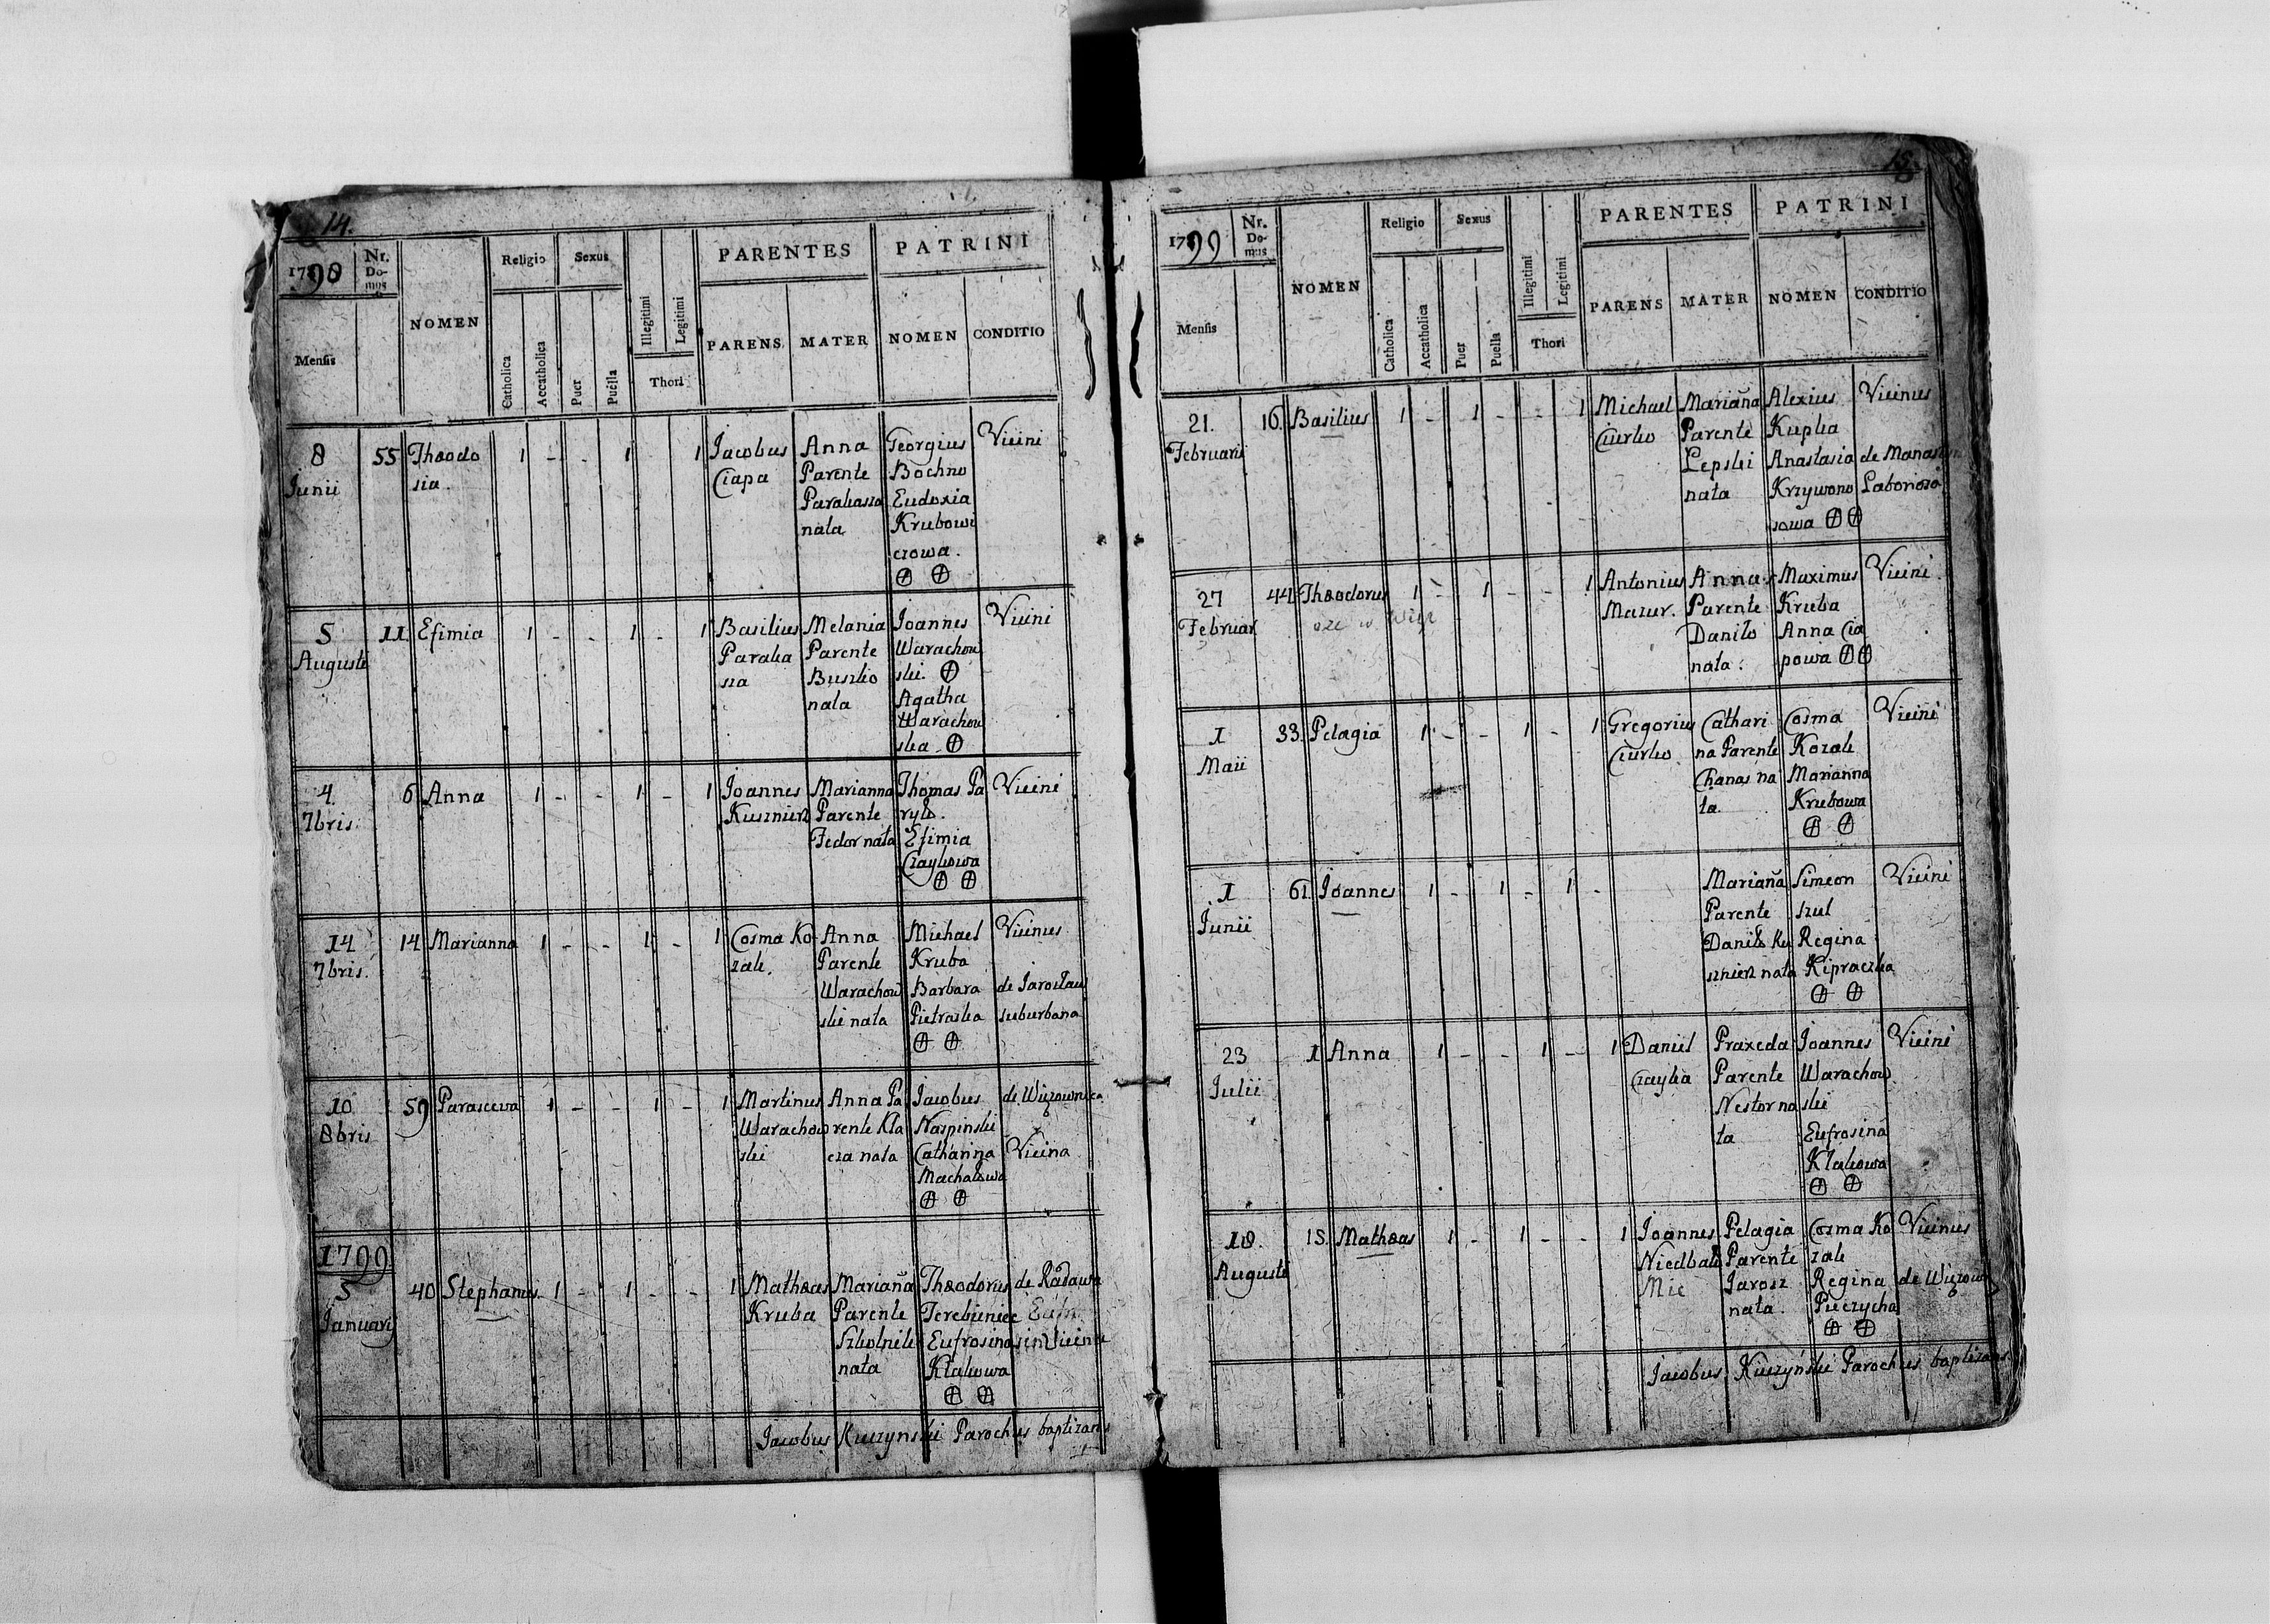 14.
1798
Nr. Domus
NOMEN
Religio
Sexus
Illegitimi
Legitimi
Thori
PARENTES
PATRINI
Mensis
Catholica
Accatholica
Puer
Puella
PARENS
MATER
NOMEN
CONDITIO
8 Junii 55 Theodosia. 1 - - 1 1
Jacobus Ciapa
Anna Parente Parakasza nata
Georgius Bochno Eudoxia Krubowiczowa. ⊕ ⊕
Vicini
5 Auguste 11. Efimia 1 - - 1 - 1
Basilius Parakasza
Melania Parente Buszko nata
Joannes Warachowski. ⊕ Agatha Warachowska. ⊕
Vicini
4. 7bris. 6 Anna 1 - - 1 - 1
Joannes Kusznierz
Marianna Parente Fedor nata
Thomas Paryło. Efimia Czaykowa ⊕ ⊕
Vicini
14 7bris. 14 Marianna 1 - - 1 - 1
Cosma Kozak.
Anna Parente Warachowski nata
Michael Kruba Barbara Pietraska ⊕ ⊕
Vicinus de Jarosław suburbana
10 8bris 59 Parasceva 1 - - 1 - 1
Martinus Warachowski
Anna Parente Kłacza nata
Jacobus Naspinski Catharina Machałowa ⊕ ⊕
de Wiązownica Vicina
1799
5 Januarij 40 Stephanus. 1 - 1 - - 1
Matheas Kruba
Mariaña Parente Szkolnik nata
Theodorus Terebieniec Eufrosina Kłakowa ⊕ ⊕
de Radawa Vicina
Jacobus Kuczynski Parochus baptizans
15.
1799
Nr. Domus
NOMEN
Religio
Sexus
Illegitimi
Legitimi
Thori
PARENTES
PATRINI
Mensis
Catholica
Accatholica
Puer
Puella
PARENS
MATER
NOMEN
CONDITIO
21. Februarii 16. Basilius 1 - 1 - - 1
Michael Ciurko
Mariaña Parente Lepski nata
Alexius Kupka Anastasia Krzywonosowa ⊕⊕
Vicinus Laboriosa
27 Februar. 44 Theodorus 1 - 1 - - 1
Antonius Mazur.
Anna Parente Daniło nata.
Maximus Kruba Anna Ciapowa ⊕⊕
Vicini
1 Maii 33. Pelagia 1 - - 1 - 1
Gregorius Ciurko.
Catharina Parente Chanas nata.
Cosma Kozak Marianna Krubowa ⊕ ⊕
Vicini
1 Junii 61. Joannes 1 - 1 - 1 -
Mariaña Parente Daniło Kusznierz nata
Simeon Szul Regina Kipraczka ⊕ ⊕
Vicini
23 Julii 1 Anna 1 - - 1 - 1
Daniel Czayka
Praxeda Parente Nestor nata
Joannes Warachowski Eufrosina Kłakowa ⊕ ⊕
Vicini
18. Auguste 15. Matheas 1 - 1 - - 1
Joannes Niedbało Mic
Pelagia Parente Jarosz nata.
Cosma Kozak Regina Pieczycha ⊕ ⊕
Vicinus
Jacobus Kuczyński Parochus baptizans